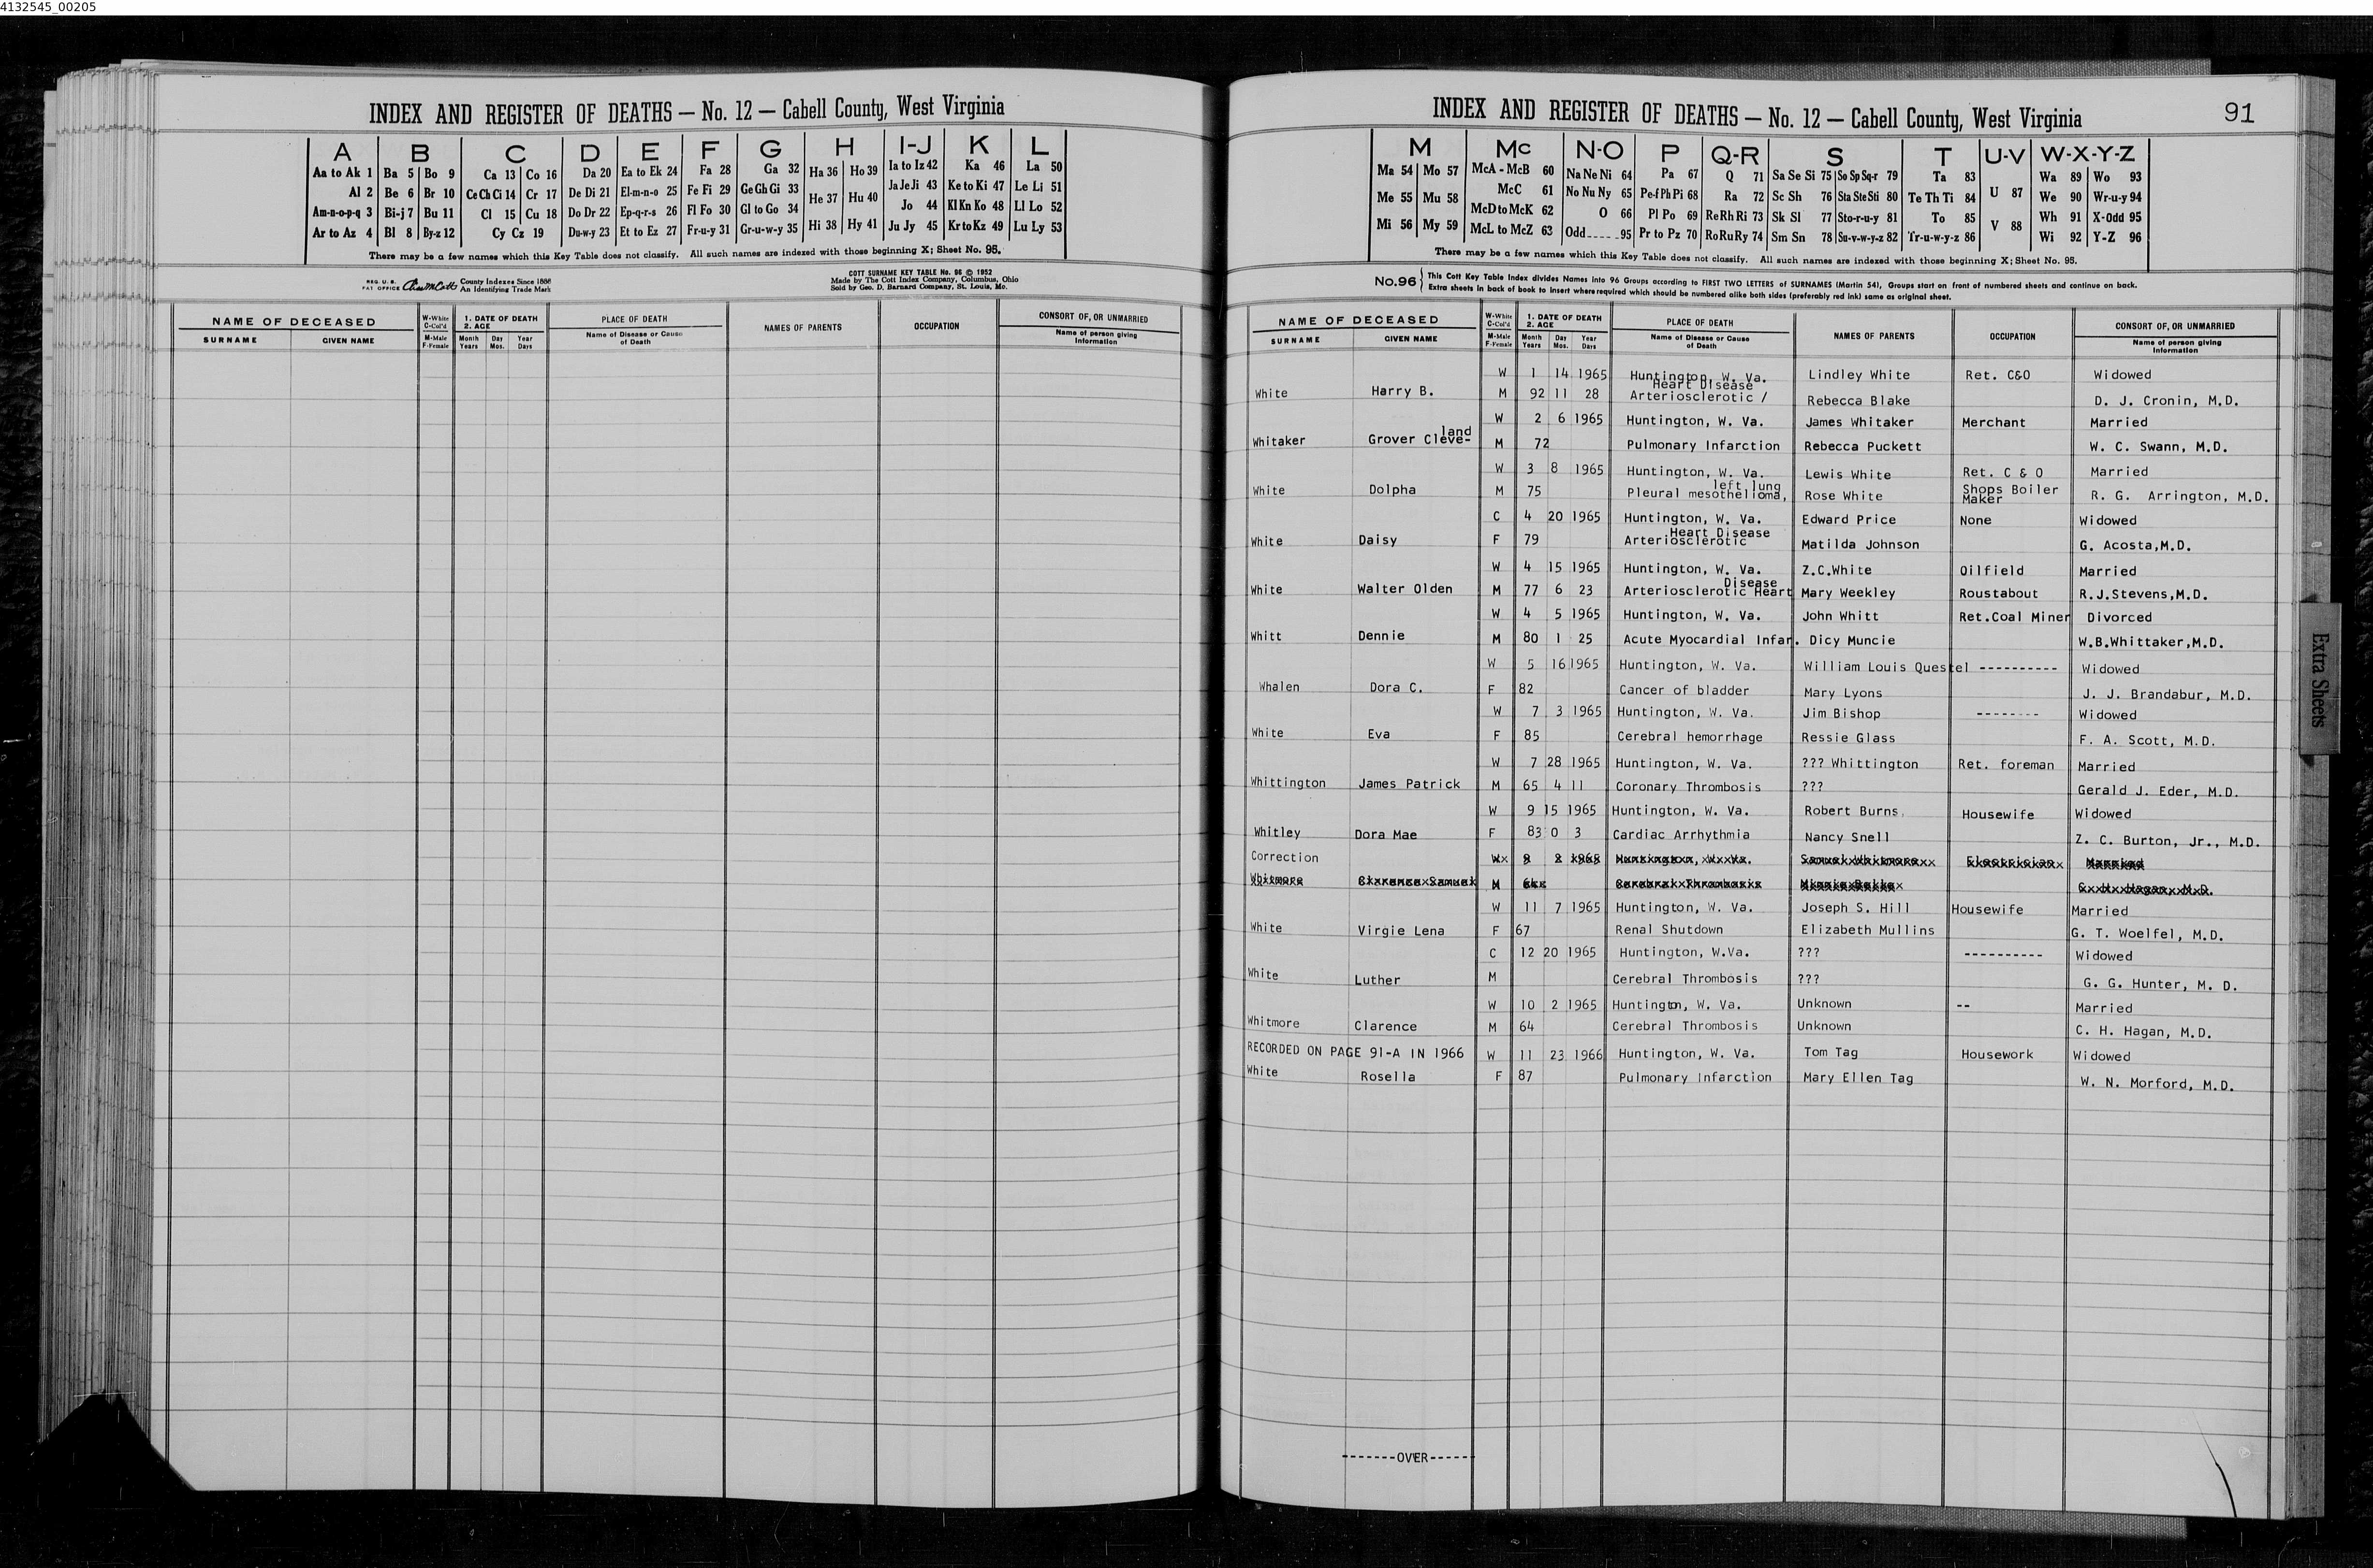 4132545_00205
INDEX AND REGISTER OF DEATHS — No. 12 — Cabell County, West Virginia
A B C D E F G H I-J K L
Aa to Ak 1 Ba 5 Bo 9 Ca 13 Co 16 Da 20 Ea to Ek 24 Fa 28 Ga 32 Ha 36 Ho 39 Ia to Iz 42 Ka 46 La 50
Al 2 Be 6 Br 10 Ce Ch Ci 14 Cr 17 De Di 21 El-m-n-o 25 Fe Fi 29 Ge Gh Gi 33 He 37 Hu 40 Ja Je Ji 43 Ke to Ki 47 Le Li 51
Am-n-o-p-q 3 Bi-j 7 Bu 11 Cl 15 Cu 18 Do Dr 22 Ep-q-r-s 26 Fl Fo 30 Gl to Go 34 Jo 44 Kl Kn Ko 48 Ll Lo 52
Ar to Az 4 Bl 8 By-z 12 Cy Cz 19 Du-w-y 23 Et to Ez 27 Fr-u-y 31 Gr-u-w-y 35 Hi 38 Hy 41 Ju Jy 45 Kr to Kz 49 Lu Ly 53
There may be a few names which this Key Table does not classify. All such names are indexed with those beginning X; Sheet No. 95.
REG. U. S. PAT OFFICE County Indexes Since 1888
An Identifying Trade Mark
COTT SURNAME KEY TABLE No. 96 © 1952
Made by The Cott Index Company, Columbus, Ohio
Sold by Geo. D. Barnard Company, St. Louis, Mo.
NAME OF DECEASED W-White C-Col'd 1. DATE OF DEATH 2. AGE PLACE OF DEATH NAMES OF PARENTS OCCUPATION CONSORT OF, OR UNMARRIED
SURNAME GIVEN NAME M-Male F-Female Month Years Day Mos. Year Days Name of Disease or Cause of Death Name of person giving Information
INDEX AND REGISTER OF DEATHS — No. 12 — Cabell County, West Virginia 91
M Mc N-O P Q-R S T U-V W-X-Y-Z
Ma 54 Mo 57 McA - McB 60 Na Ne Ni 64 Pa 67 Q 71 Sa Se Si 75 So Sp Sq-r 79 Ta 83 Wa 89 Wo 93
Me 55 Mu 58 McC 61 No Nu Ny 65 Pe-f Ph Pi 68 Ra 72 Sc Sh 76 Sta Ste Sti 80 Te Th Ti 84 U 87 We 90 Wr-u-y 94
McD to McK 62 O 66 Pl Po 69 Re Rh Ri 73 Sk Sl 77 Sto-r-u-y 81 To 85 Wh 91 X-Odd 95
Mi 56 My 59 McL to McZ 63 Odd.....95 Pr to Pz 70 Ro Ru Ry 74 Sm Sn 78 Su-v-w-y-z 82 Tr-u-w-y-z 86 V 88 Wi 92 Y-Z 96
There may be a few names which this Key Table does not classify. All such names are indexed with those beginning X; Sheet No. 95.
No.96 This Cott Key Table Index divides Names into 96 Groups according to FIRST TWO LETTERS of SURNAMES (Martin 54), Groups start on front of numbered sheets and continue on back.
Extra sheets in back of book to insert where required which should be numbered alike both sides (preferably red ink) same as original sheet.
NAME OF DECEASED W-White C-Col'd 1. DATE OF DEATH 2. AGE PLACE OF DEATH NAMES OF PARENTS OCCUPATION CONSORT OF, OR UNMARRIED
SURNAME GIVEN NAME M-Male F-Female Month Years Day Mos. Year Days Name of Disease or Cause of Death Name of person giving Information
W 1 14 1965 Huntington, W. Va. Lindley White Ret. C&O Widowed
Heart Disease
White Harry B. M 92 11 28 Arteriosclerotic / Rebecca Blake D. J. Cronin, M.D.
W 2 6 1965 Huntington, W. Va. James Whitaker Merchant Married
land
Whitaker Grover Cleve- M 72 Pulmonary Infarction Rebecca Puckett W. C. Swann, M.D.
W 3 8 1965 Huntington, W. Va. Lewis White Ret. C & O Married
left lung Shops Boiler
White Dolpha M 75 Pleural mesothelioma, Rose White Maker R. G. Arrington, M.D.
C 4 20 1965 Huntington, W. Va. Edward Price None Widowed
Heart Disease
White Daisy F 79 Arteriosclerotic Matilda Johnson G. Acosta,M.D.
W 4 15 1965 Huntington, W. Va. Z.C.White Oilfield Married
Disease
White Walter Olden M 77 6 23 Arteriosclerotic Heart Mary Weekley Roustabout R.J.Stevens,M.D.
W 4 5 1965 Huntington, W. Va. John Whitt Ret.Coal Miner Divorced
Whitt Dennie M 80 1 25 Acute Myocardial Infar. Dicy Muncie W.B.Whittaker,M.D.
W 5 16 1965 Huntington, W. Va. William Louis Questel ---------- Widowed
Whalen Dora C. F 82 Cancer of bladder Mary Lyons J. J. Brandabur, M.D.
W 7 3 1965 Huntington, W. Va. Jim Bishop -------- Widowed
White Eva F 85 Cerebral hemorrhage Ressie Glass F. A. Scott, M.D.
W 7 28 1965 Huntington, W. Va. ??? Whittington Ret. foreman Married
Whittington James Patrick M 65 4 11 Coronary Thrombosis ??? Gerald J. Eder, M.D.
W 9 15 1965 Huntington, W. Va. Robert Burns Housewife Widowed
Whitley Dora Mae F 83 0 3 Cardiac Arrhythmia Nancy Snell Z. C. Burton, Jr., M.D.
Correction
Whitmore M
W 11 7 1965 Huntington, W. Va. Joseph S. Hill Housewife Married
White Virgie Lena F 67 Renal Shutdown Elizabeth Mullins G. T. Woelfel, M.D.
C 12 20 1965 Huntington, W.Va. ??? ---------- Widowed
White Luther M Cerebral Thrombosis ??? G. G. Hunter, M. D.
W 10 2 1965 Huntington, W. Va. Unknown -- Married
Whitmore Clarence M 64 Cerebral Thrombosis Unknown C. H. Hagan, M.D.
RECORDED ON PAGE 91-A IN 1966 W 11 23 1966 Huntington, W. Va. Tom Tag Housework Widowed
White Rosella F 87 Pulmonary Infarction Mary Ellen Tag W. N. Morford, M.D.
-------OVER------
Extra Sheets